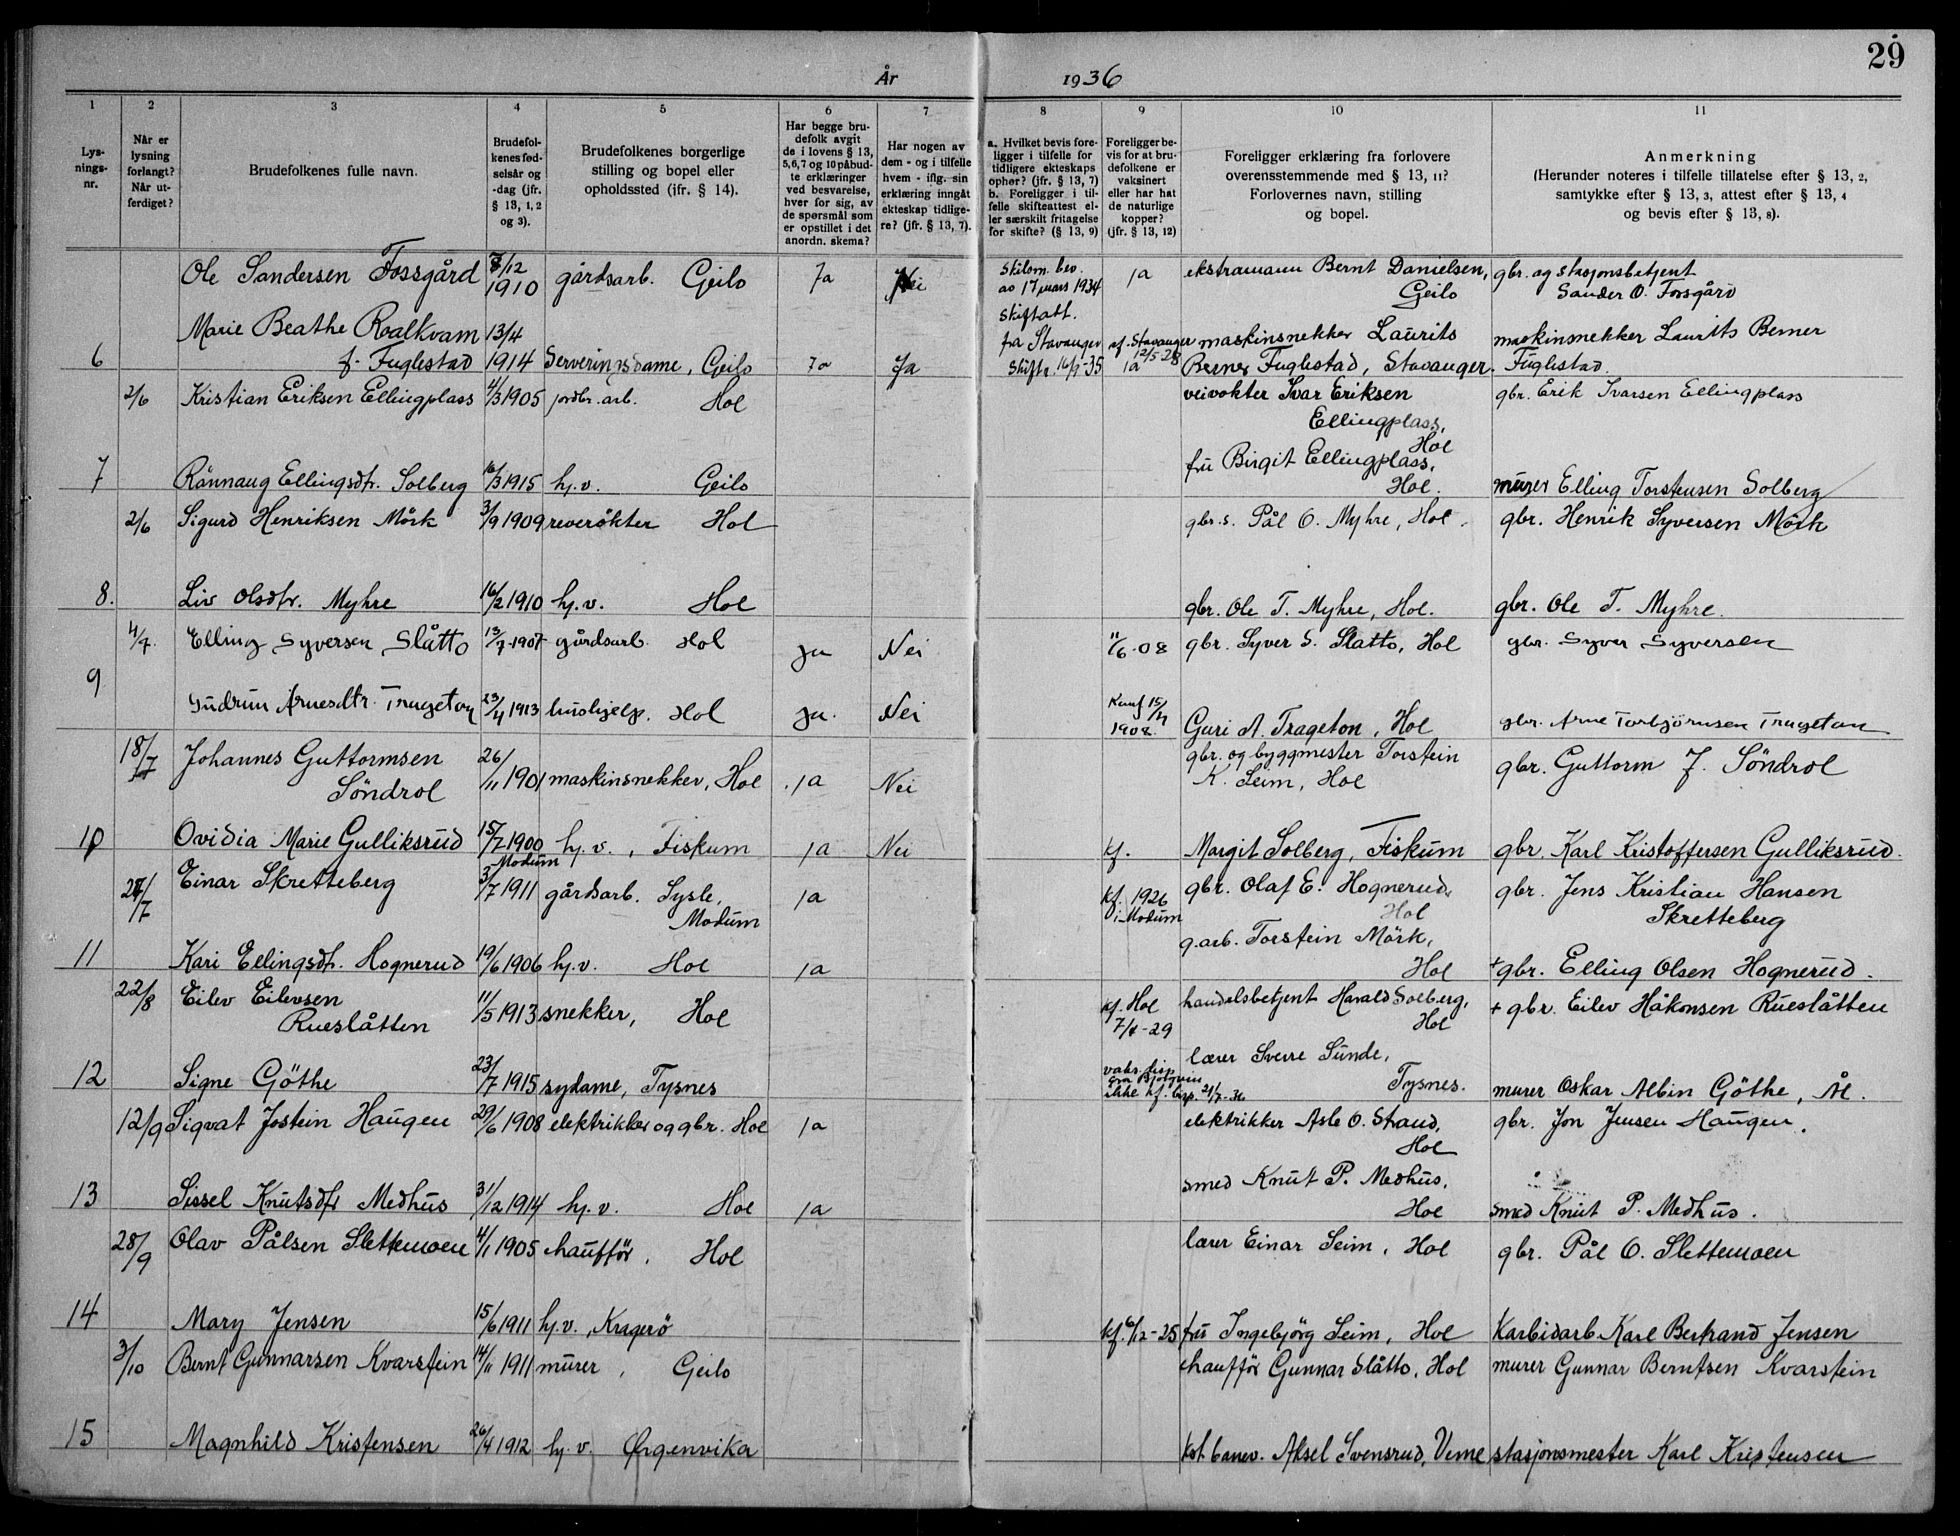 29
År 1936
1 2 3 4 5 6 7 8 9 10 11
Lys-
nings-
nr.
Når er
lysning
forlangt?
Når ut-
ferdiget?
Brudefolkenes fulle navn.
Brudefol-
kenes fød-
selsår og
-dag (jfr.
§ 13, 1, 2
og 3).
Brudefolkenes borgerlige
stilling og bopel eller
opholdssted (jfr. § 14).
Har begge bru-
defolk avgit
de i lovens § 13,
5, 6, 7 og 10 påbud-
te erklæringer
ved besvarelse,
hver for sig, av
de spørsmål som
er opstillet i det
anordn. skema?
Har nogen av
dem - og i tilfelle
hvem - iflg. sin
erklæring inngåt
ekteskap tidlige-
re? (jfr. § 13, 7).
a. Hvilket bevis fore-
ligger i tilfelle for
tidligere ekteskaps
ophør? (jfr. § 13, 7)
b. Foreligger i til-
felle skifteattest el-
ler særskilt fritagelse
for skifte? (§ 13, 9)
Foreligger be-
vis for at bru-
defolkene er
vaksinert
eller har hat
de naturlige
kopper?
(jfr. § 13, 12)
Foreligger erklæring fra forlovere
overensstemmende med § 13, 11?
Forlovernes navn, stilling
og bopel.
Anmerkning
(Herunder noteres i tilfelle tillatelse efter § 13, 2,
samtykke efter § 13, 3, attest efter § 13, 4
og bevis efter § 13, 8).
Ole Sandersen Fossgård 8/12 1910 gårdsarb. Geilo Ja Nei Skilsm. bev. av 17 mars 1934 ja ekstramann Bernt Danielsen, Geilo gbr. og stasjonsbetjent Sander O. Fossgård
6 Marie Beathe Roalkvam f. Fuglestad 13/4 1914 Serveringsdame, Geilo Ja Ja Skiftatt. fra Stavanger Skiftr. 16/9-35 af. Stavanger 12/5-28 ja maskinsnekker Laurits Berner Fuglestad, Stavanger. maskinsnekker Laurits Berner Fuglestad.
2/6 Kristian Eriksen Ellingplass 4/3 1905 jordbr. arb. Hol veivokter Ivar Eriksen Ellingplass, Hol gbr. Erik Ivarsen Ellingplass
7 Rønnaug Ellingsdtr. Solberg 16/3 1915 hj. v. Geilo fru Birgit Ellingplass, Hol. murer Elling Torstensen Solberg
2/6 Sigurd Henriksen Mörk 3/9 1909 reverökter Hol gbr. s. Pål O. Myhre, Hol. gbr. Henrik Syversen Mörk
8. Liv Olsdtr. Myhre 16/2 1910 hj. v. Hol gbr. Ole T. Myhre, Hol. gbr. Ole T. Myhre.
4/7. Elling Syversen Slåtto 13/7-1907 gårdsarb. Hol ja Nei 11/6-08 gbr. Syver S. Slatto, Hol gbr. Syver Syversen
9 Gudrun Arnesdtr. Trageton 23/4 1913 hushjelp. Hol ja. Nei 1908. Guri A. Trageton, Hol gbr. Arne Torbjörnsen Trageton
18/7 Johannes Guttormsen Söndrol 26/11 1901 maskinsnekker, Hol ja Nei gbr. og byggmester Torstein K. Seim, Hol gbr. Guttorm J. Söndrol
10 Ovidia Marie Gulliksrud 15/7 1900 hj. v., Fiskum ja Nei kf. Margit Solberg, Fiskum gbr. Karl Kristoffersen Gulliksrud.
24/7 Einar Skretteberg Modum 3/7 1911 gårdsarb. Sysle, Modum ja kf. 1926 i Modum gbr. Olaf E. Hognerud, Hol gbr. Jens Kristian Hansen Skretteberg
11 Kari Ellingsdtr. Hognerud 19/6 1906 hj. v. Hol ja g.arb. Torstein Mörk, Hol + gbr. Elling Olsen Hognerud.
22/8 Eilev Eilevsen Rueslåtten 11/5 1913 snekker, Hol kf. Hol 7/4-29 handelsbetjent Harald Solberg, Hol + gbr. Eilev Håkonsen Rueslåtten
12 Signe Göthe 23/7 1915 sydame, Tysnes lærer Sverre Sunde, Tysnes. murer Oskar Albin Göthe, Ål.
12/9 Sigvat Jostein Haugen 29/6 1908 elektrikker og gbr. Hol ja elektrikker Asle O. Strand, Hol gbr. Jon Jensen Haugen.
13 Sissel Knutsdtr Medhus 31/12 1914 hj. v. Hol ja smed Knut P. Medhus, Hol smed Knut P. Medhus.
28/9 Olav Pålsen Slettemoen 4/1 1905 chaufför, Hol lærer Einar Seim, Hol gbr. Pål O. Slettemoen
14 Mary Jensen 15/6 1911 hj. v., Kragerö kf. 6/12-25 fru Ingebjörg Seim, Hol Karbidarb. Karl Bertrand Jensen
3/10 Bernt Gunnarsen Kvarstein 14/11 1911 murer, Geilo chaufför Gunnar Slåtto, Hol murer Gunnar Berntsen Kvarstein
15 Magnhild Kristensen 26/4 1912 hj. v. Ørgenvika kst. banev. Aksel Svensrud, Veme stasjonsmester Karl Kristensen